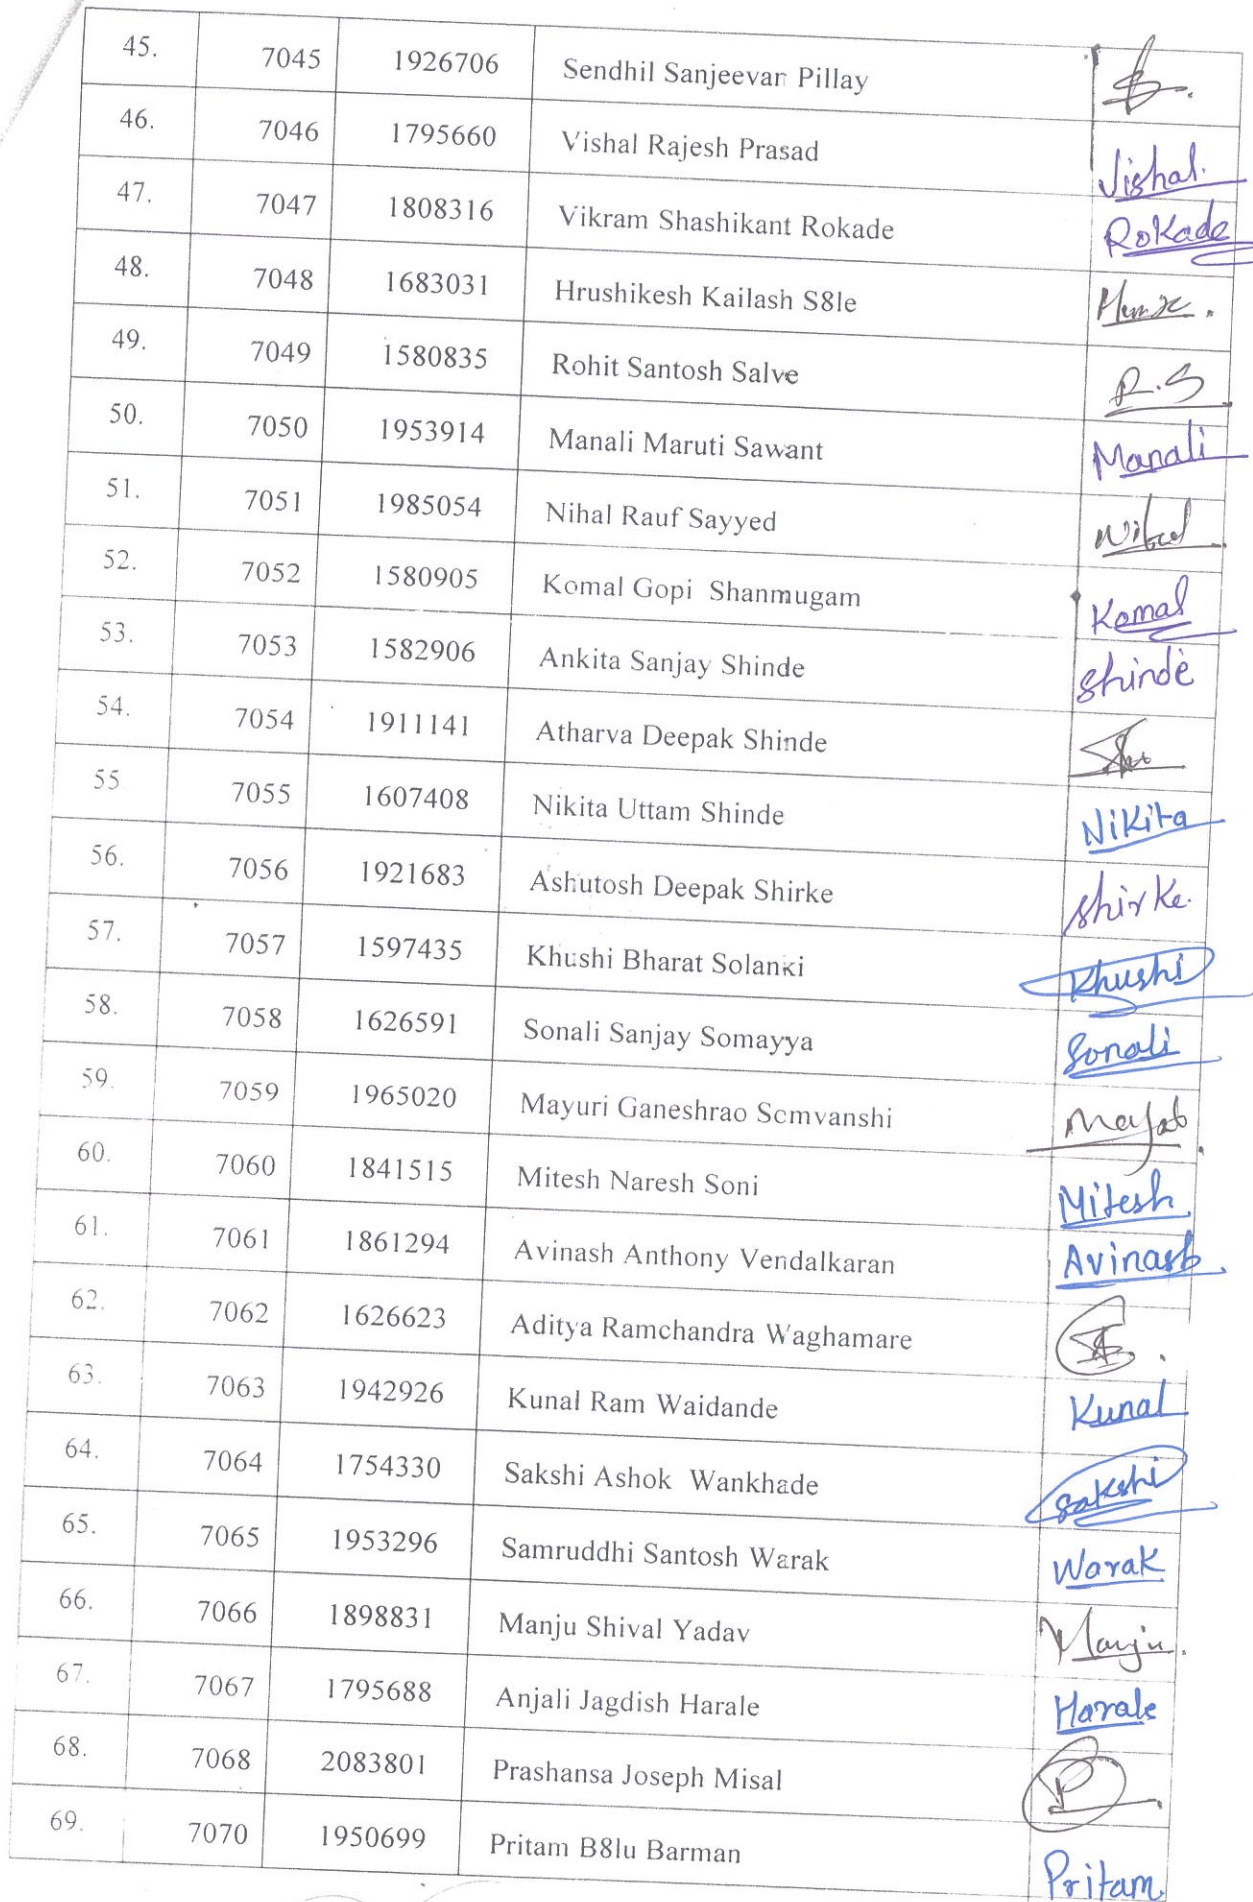 45. 7045 1926706 Sendhil Sanjeevan Pillay
46. 7046 1795660 Vishal Rajesh Prasad Vishal.
47. 7047 1808316 Vikram Shashikant Rokade Rokade
48. 7048 1683031 Hrushikesh Kailash S8le
49. 7049 1580835 Rohit Santosh Salve R.S
50. 7050 1953914 Manali Maruti Sawant Manali
51. 7051 1985054 Nihal Rauf Sayyed Nihal
52. 7052 1580905 Komal Gopi Shanmugam Komal
53. 7053 1582906 Ankita Sanjay Shinde Shinde
54. 7054 1911141 Atharva Deepak Shinde
55 7055 1607408 Nikita Uttam Shinde Nikita
56. 7056 1921683 Ashutosh Deepak Shirke Shirke.
57. 7057 1597435 Khushi Bharat Solanki Khushi
58. 7058 1626591 Sonali Sanjay Somayya Sonali
59. 7059 1965020 Mayuri Ganeshrao Somvanshi
60. 7060 1841515 Mitesh Naresh Soni Mitesh.
61. 7061 1861294 Avinash Anthony Vendalkaran Avinash.
62. 7062 1626623 Aditya Ramchandra Waghamare
63. 7063 1942926 Kunal Ram Waidande Kunal
64. 7064 1754330 Sakshi Ashok Wankhade Sakshi
65. 7065 1953296 Samruddhi Santosh Warak Warak
66. 7066 1898831 Manju Shival Yadav Manju.
67. 7067 1795688 Anjali Jagdish Harale Harale
68. 7068 2083801 Prashansa Joseph Misal P
69. 7070 1950699 Pritam B8lu Barman Pritam.